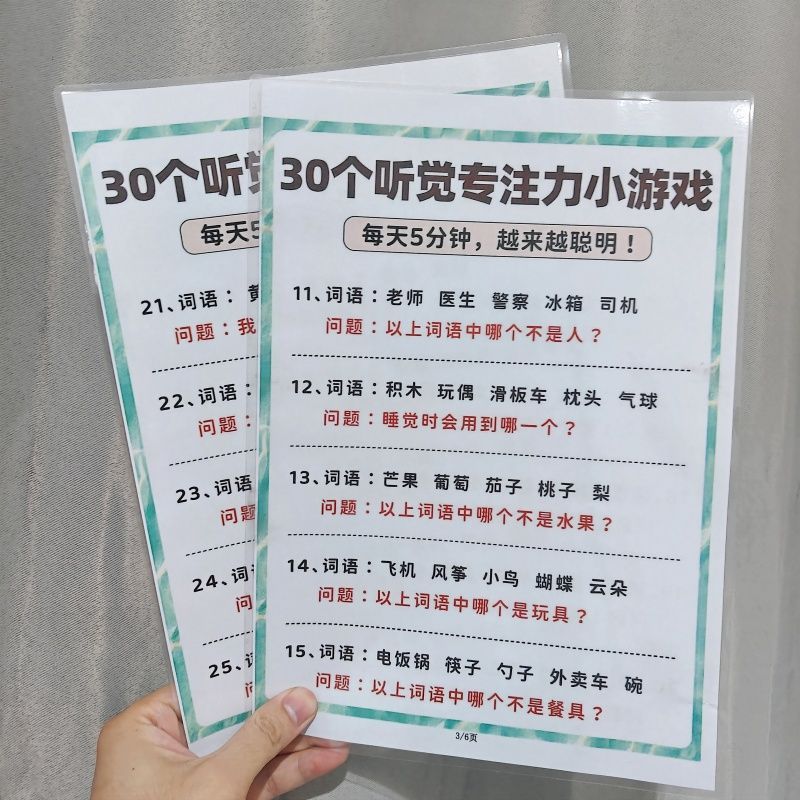 30个听觉
每天5
21、词语：黄
问题：我
22、词语：
问题：
23、词语
问题
24、词
问
25、
30个听觉专注力小游戏
每天5分钟，越来越聪明！
11、词语：老师 医生 警察 冰箱 司机
问题：以上词语中哪个不是人？
12、词语：积木 玩偶 滑板车 枕头 气球
问题：睡觉时会用到哪一个？
13、词语：芒果 葡萄 茄子 桃子 梨
问题：以上词语中哪个不是水果？
14、词语：飞机 风筝 小鸟 蝴蝶 云朵
问题：以上词语中哪个是玩具？
15、词语：电饭锅 筷子 勺子 外卖车 碗
问题：以上词语中哪个不是餐具？
3/6页